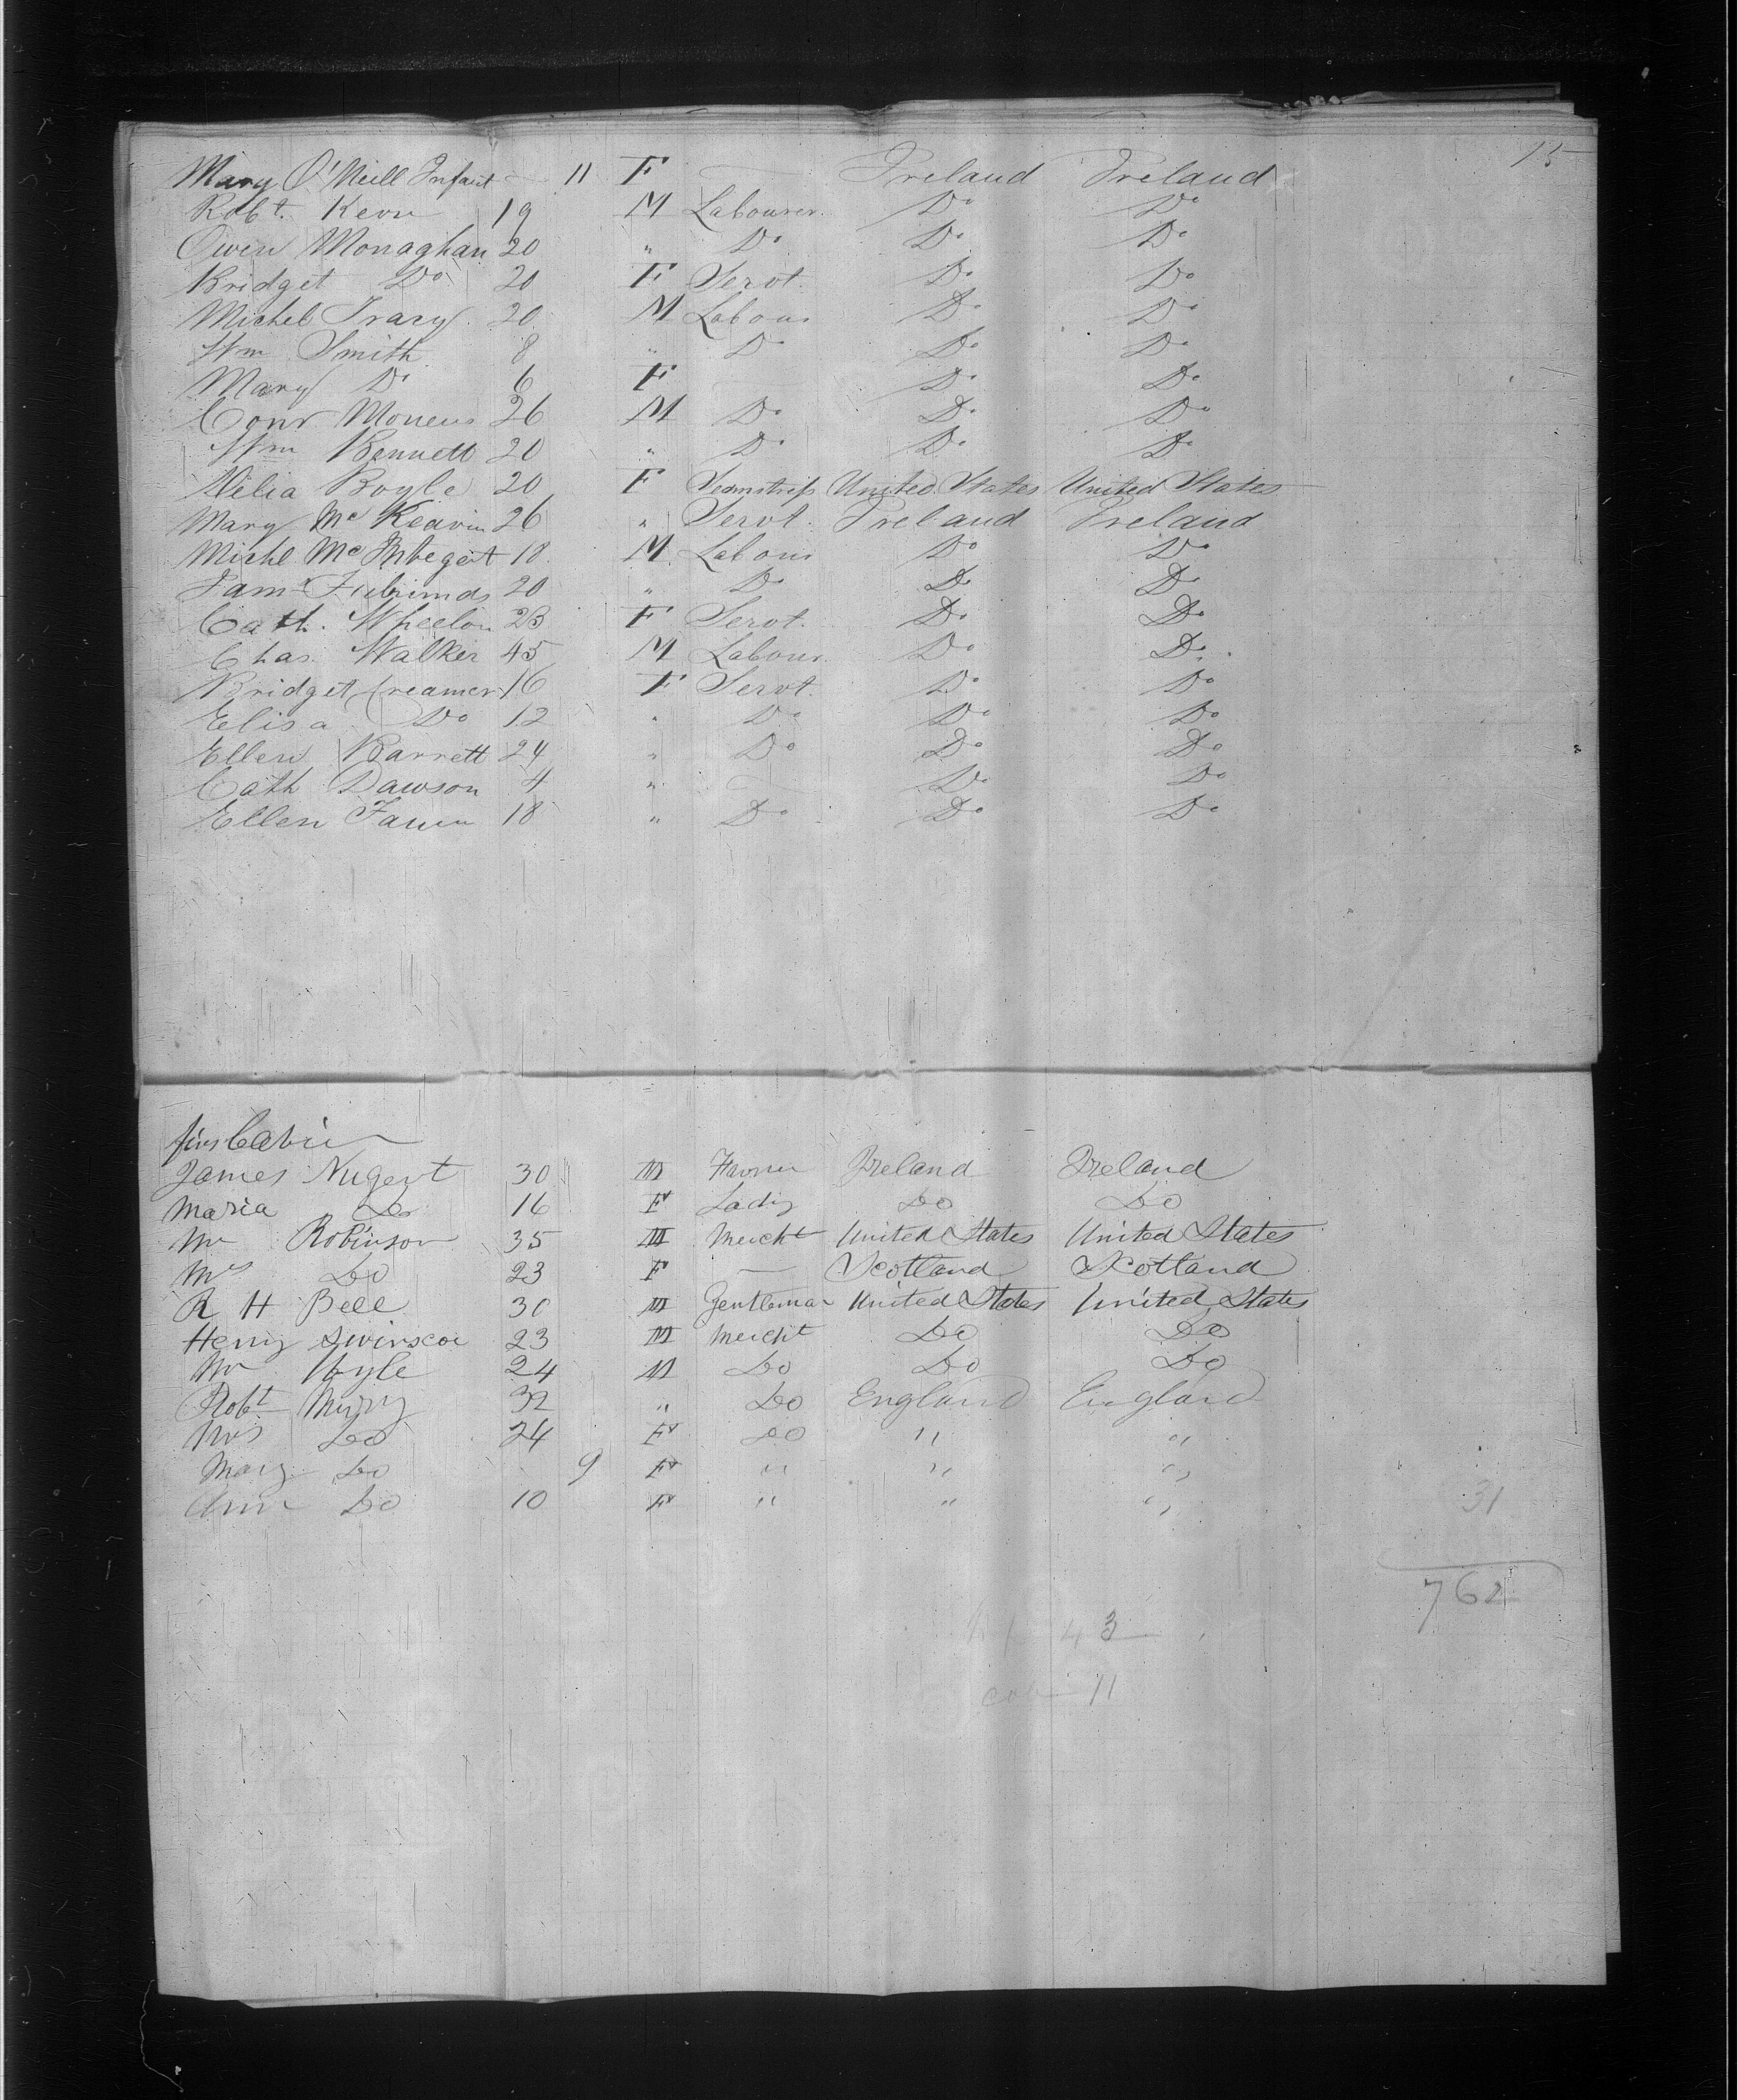 15
Mary O'Neill Infant 11 F Ireland Ireland
Robt. Kevn 19 M Labourer Do Do
Owen Monaghan 20 " Do Do Do
Bridget Do 20 F Servt. Do Do
Michel Tracy 20 M Labour Do Do
Wm Smith 8 " Do Do Do
Mary Do 6 F Do Do
Conr 26 M Do Do Do
Wm Bennett 20 " Do Do Do
Delia Boyle 20 F Seamstress United States United States
Mary Mc 26 " Servt. Ireland Ireland
Michl Mc 18 M Labour Do Do
Jams 20 " Do Do Do
Cath. Wheelon 23 F Servt. Do Do
Chas. Walker 45 M Labour Do Do
Bridget Creamer 16 F Servt. Do Do
Elisa Do 12 " Do Do Do
Ellen Barrett 24 " Do Do Do
Cath Dawson 4 " Do Do
Ellen 18 " Do Do Do
firs Cabin
James Nugent 30 M Farmer Ireland Ireland
Maria Do 16 F Lady Do Do
Mr Robinson 35 M Mercht United States United States
Mrs Do 23 F — Scotland Scotland
R H Bell 30 M Gentleman United States United States
Henry Swinscoe 23 M Mercht Do Do
Mr 24 M Do Do Do
Robt 32 " Do England England
Mrs Do 24 F Do " "
Mary Do 9 F " " "
Ann Do 10 F " " "
31
762
43
cab 11